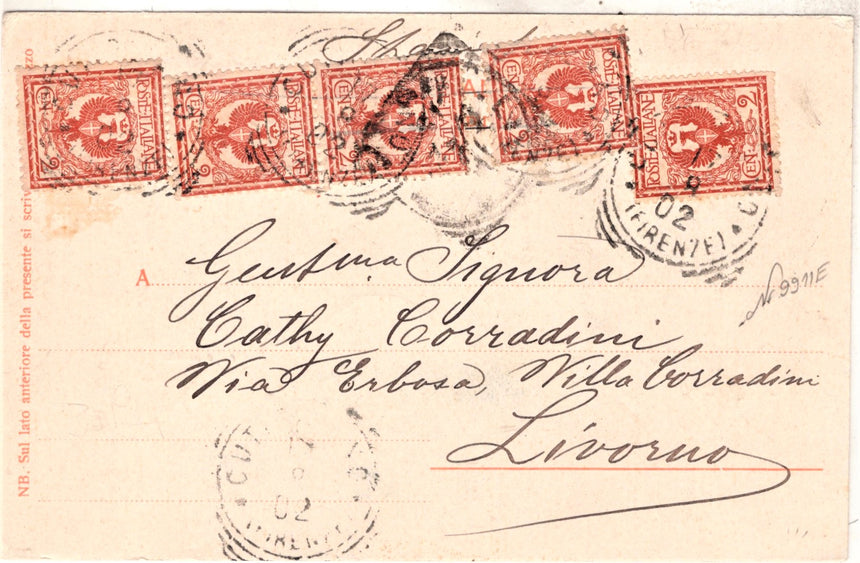 POSTE ITALIANE
CEN 2
POSTE ITALIANE
CEN 2
POSTE ITALIANE
CEN 2
POSTE ITALIANE
CEN 2
POSTE ITALIANE
CEN 2
02
(FIRENZE)
A Gentma Signora
Cathy Corradini
Via Erbosa, Villa Corradini
Livorno
No 9911E
02
(FIRENZE)
NB. Sul lato anteriore della presente si scri